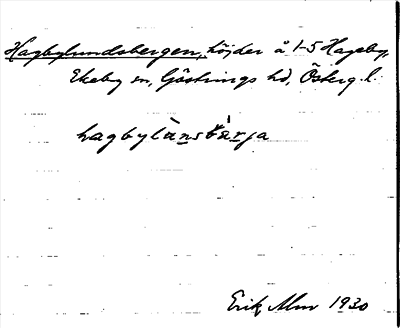 Hagbylundsbergen, höjder å 1-5 Hageby,
Ekeby sn, Göstrings hd, Österg. l.
hagbylànsbärja
Erik Alm 1930